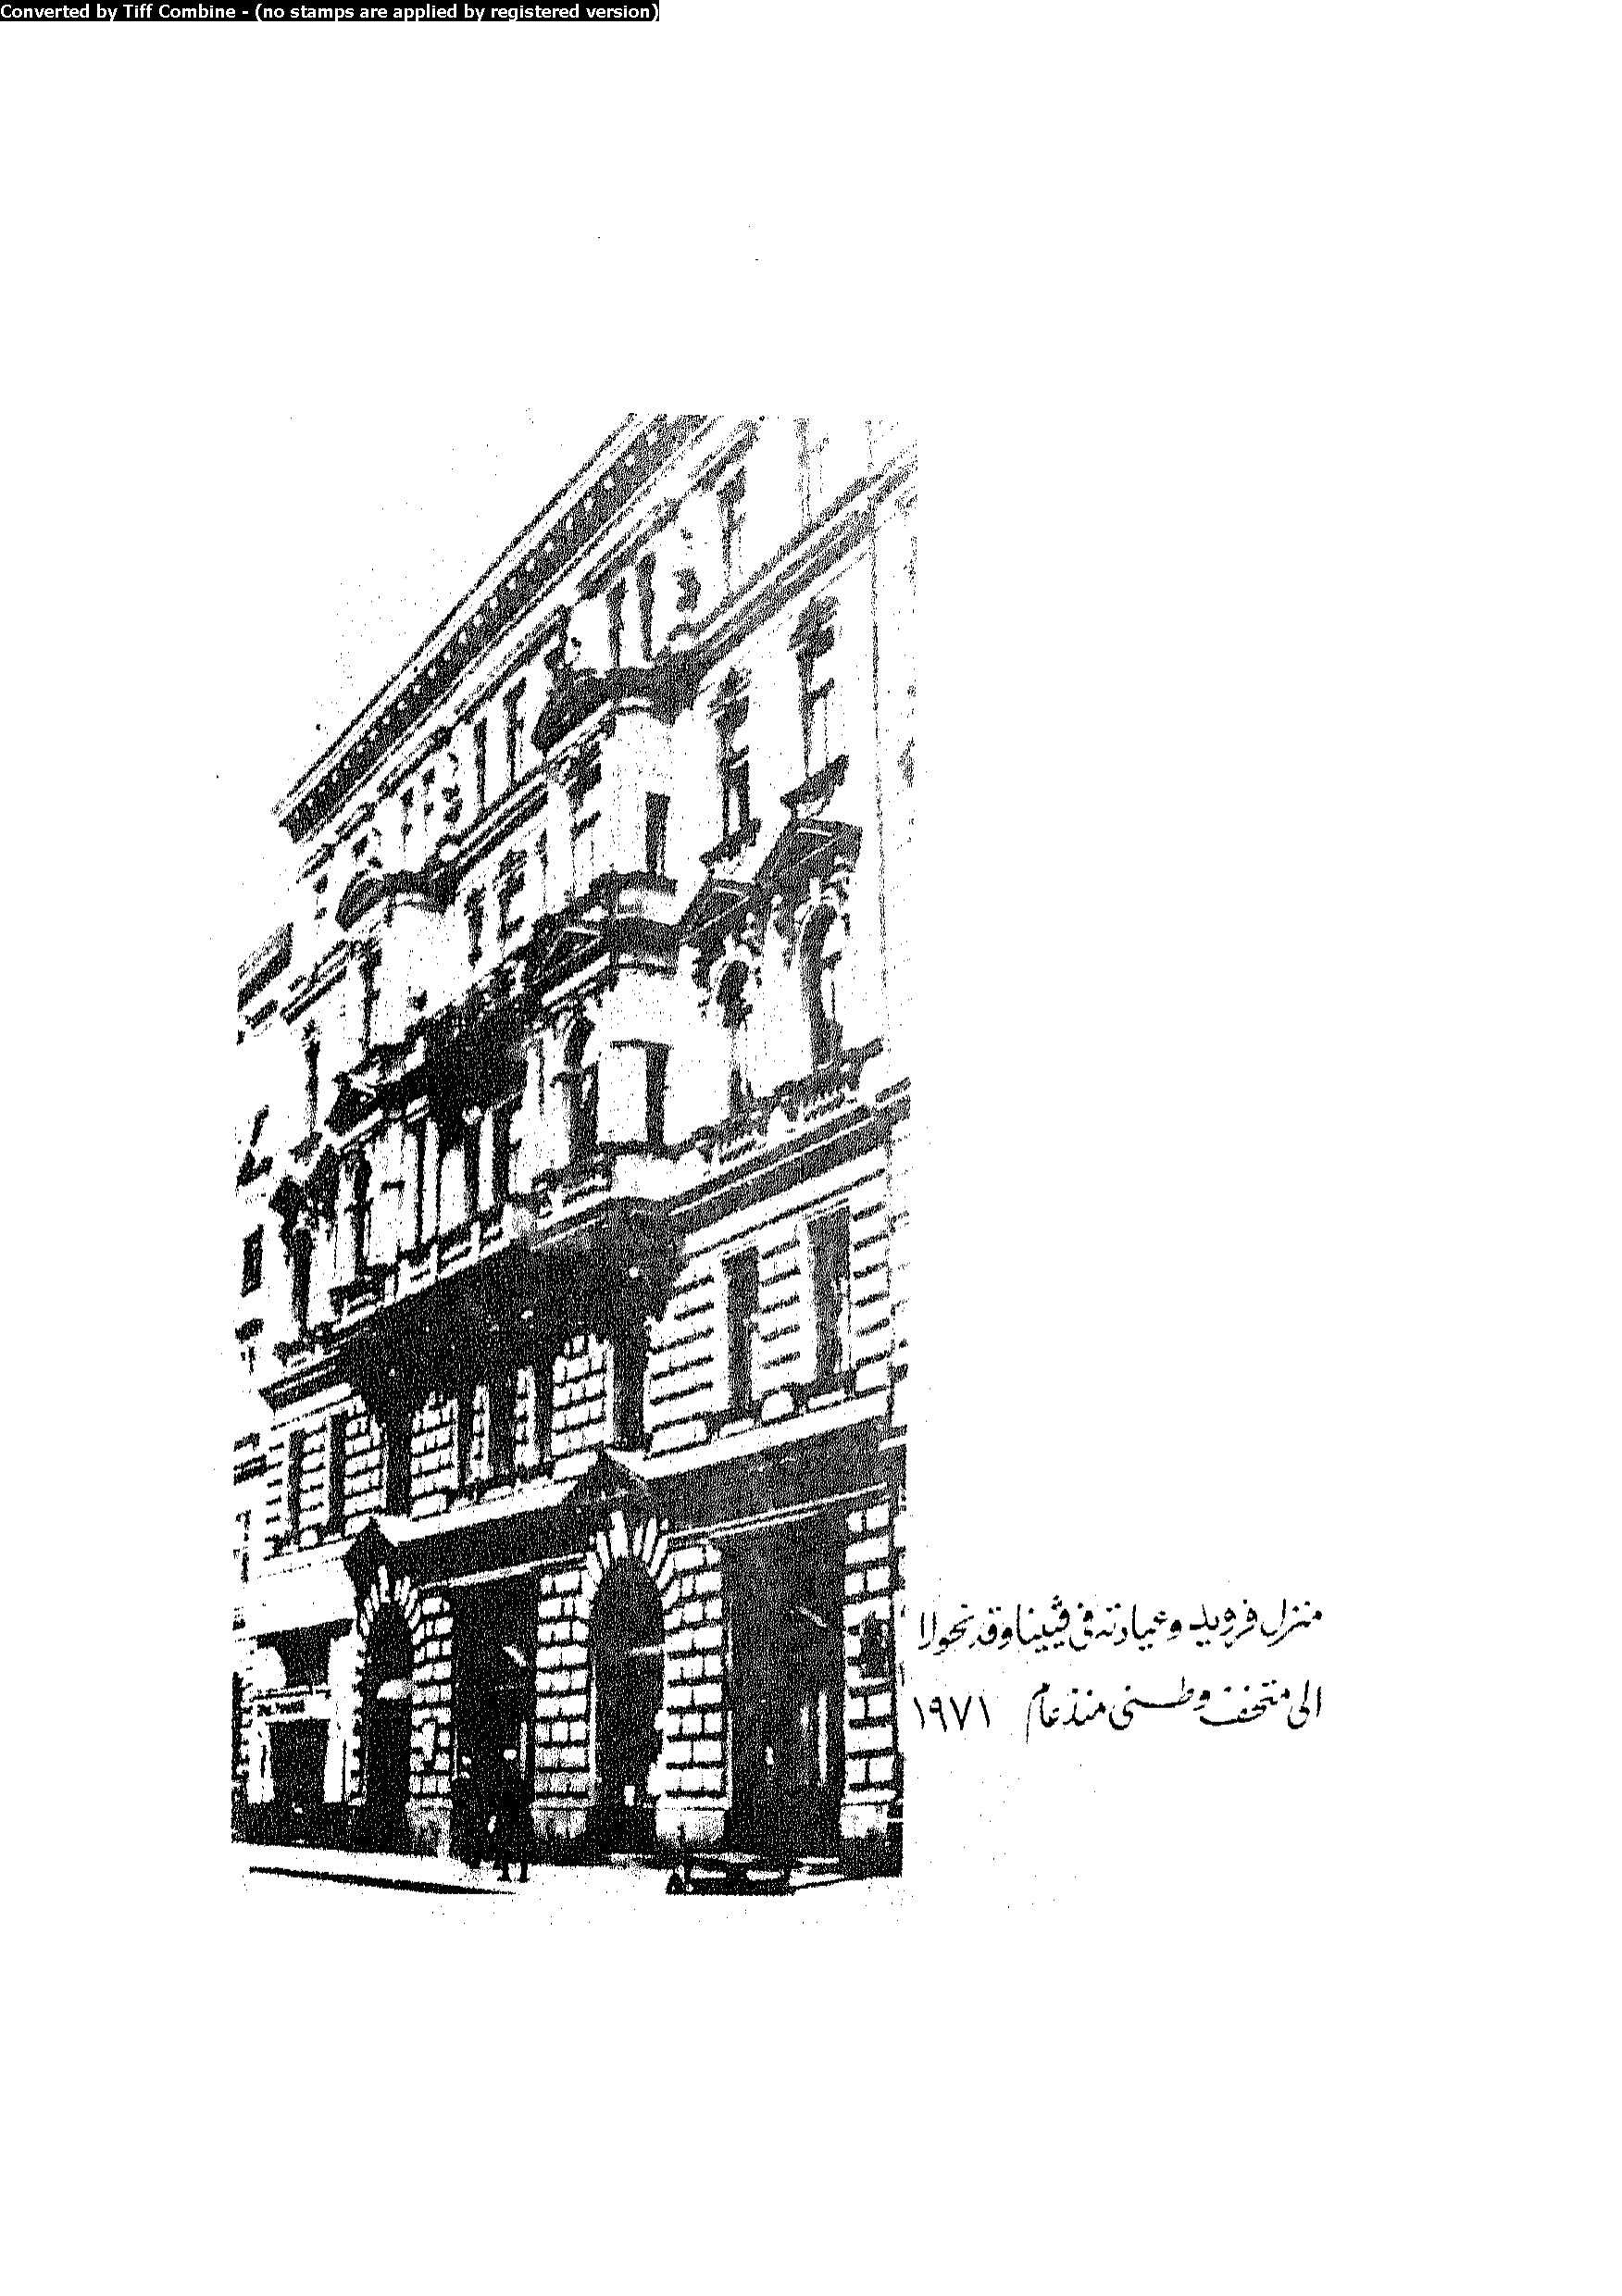 Converted by Tiff Combine - (no stamps are applied by registered version)
منزل فرويد وعيادته في ڤيينا وقد تحولا
الى متحف وطنى منذ عام ١٩٧١